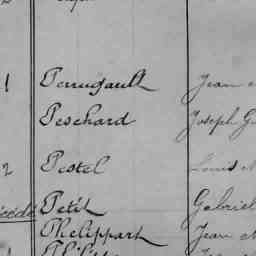 1 Perrugault Jean
Peschard Joseph
2 Pestel Louis
décédé Petit Gabriel
Phelippart Jean